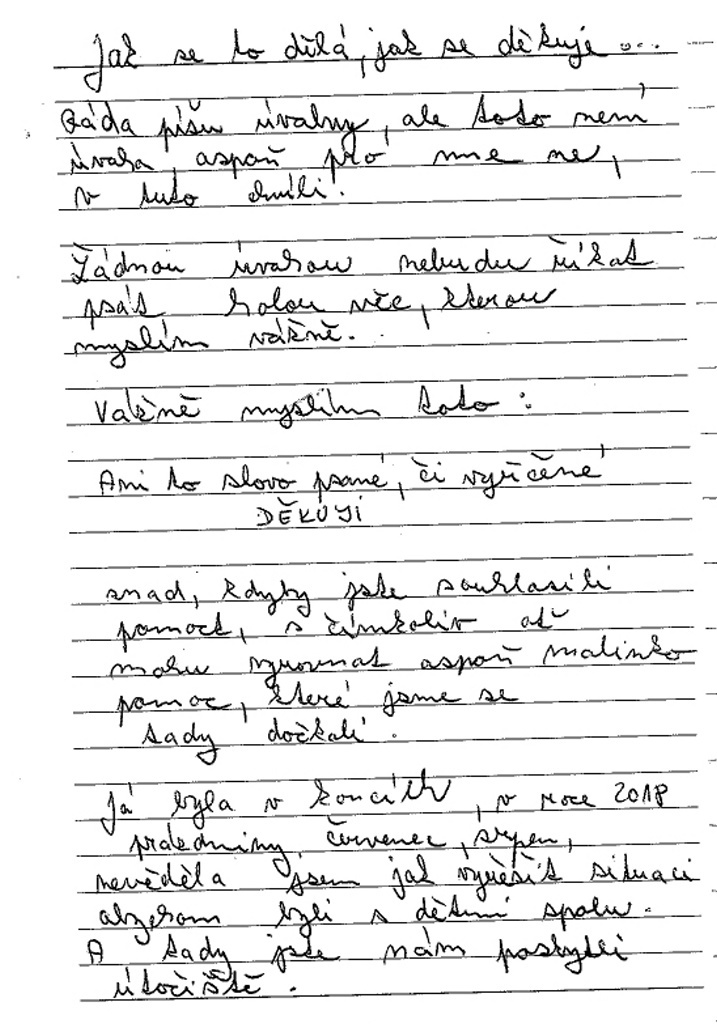 Jak se to dělá, jak se děkuje ....
Ráda píšu úvahy, ale toto není
úvaha, aspoň pro mne ne,
v tuto chvíli.
Žádnou úvahou nebudu říkat
psát holou věc, kterou
myslím vážně.
Vážně myslím toto:
Ani to slovo psané, či vyřčené
DĚKUJI
snad, kdyby jste souhlasili
pomoct, s čímkoliv ať
mohu vyrovnat aspoň malinko
pomoc, které jsme se
tady dočkali.
Já byla v koncích, v roce 2018
prázdniny červenec, srpen,
nevěděla jsem jak vyřešit situaci
abychom byli s dětmi spolu.
A tady jste nám poskytli
útočiště.